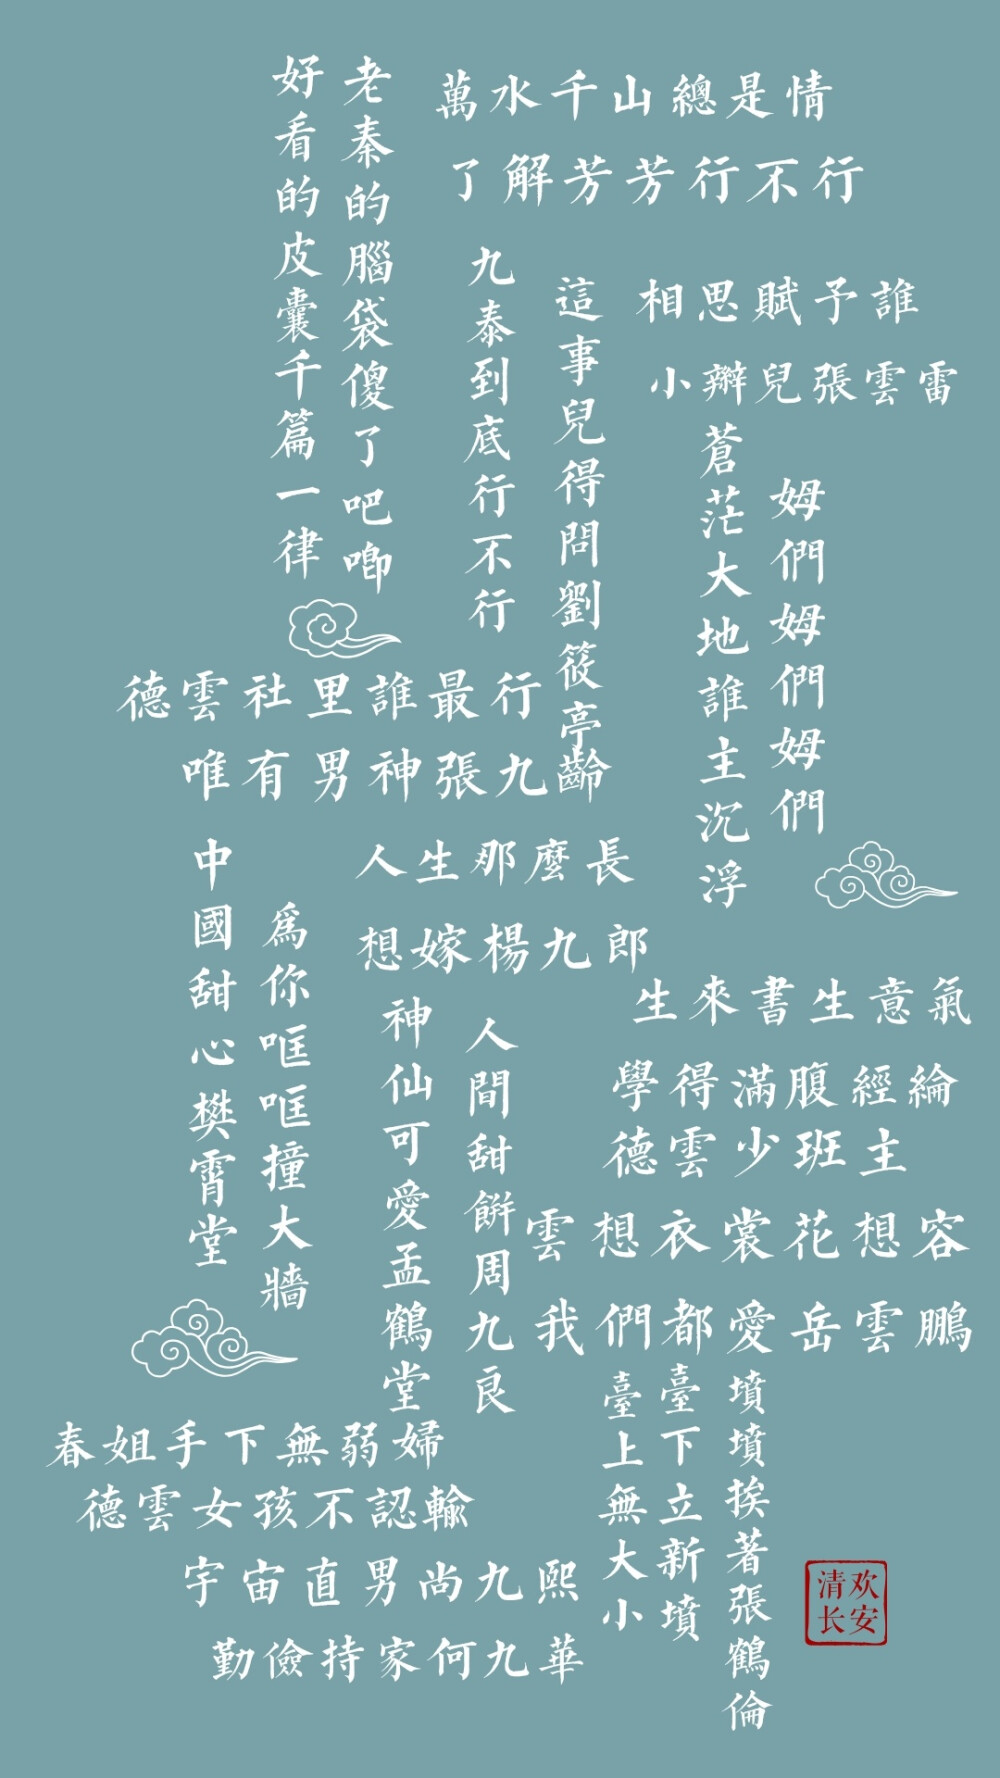 好看的皮囊千篇一律
老秦的腦袋傻了吧唧
萬水千山總是情
了解芳芳行不行
九泰到底行不行
這事兒得問劉筱亭
相思賦予誰
小辮兒張雲雷
蒼茫大地誰主沉浮
姆們姆們姆們
德雲社里誰最行
唯有男神張九齡
中國甜心樊霄堂
爲你哐哐撞大牆
人生那麼長
想嫁楊九郎
神仙可愛孟鶴堂
人間甜餅周九良
生來書生意氣
學得滿腹經綸
德雲少班主
雲想衣裳花想容
我們都愛岳雲鵬
臺上無大小
臺下立新墳
墳墳挨著張鶴倫
春姐手下無弱婦
德雲女孩不認輸
宇宙直男尚九熙
勤儉持家何九華
清欢
长安